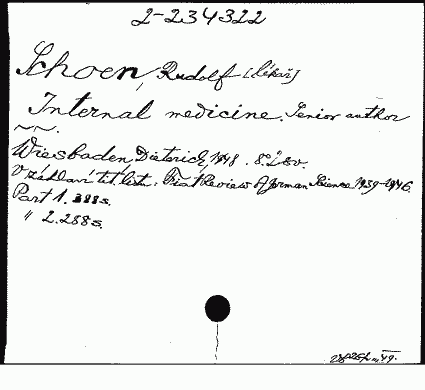 2-234322
Schoen, Rudolf [lékař]
Internal medicine. Senior author
~ ~.
Wiesbaden, Dieterich, 1948. 8°. 2 sv.
V záhlaví tit. listu: Fiat Review of German Science 1939-1946.
Part 1. 288s.
" 2. 288s.
49.